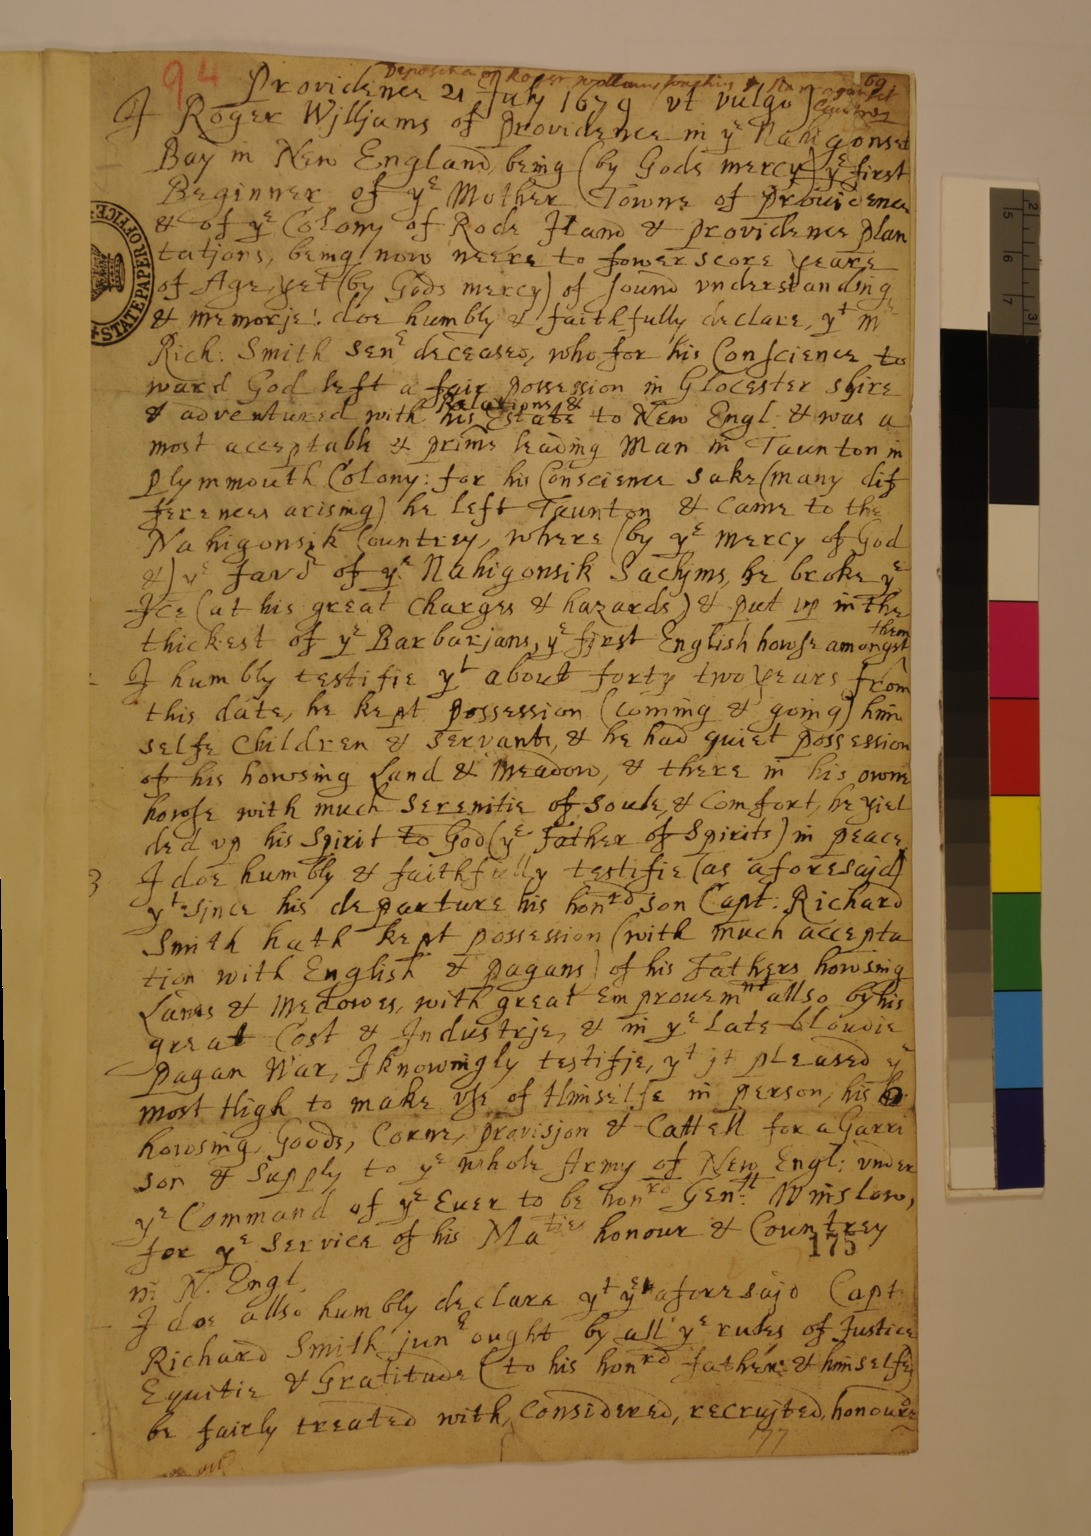 94
Deposition of Roger Williams
69
Providence 21 July 1679 vt vulgo)
I Roger Wjlljams of Providence in yᵉ Nahigonset
Bay in New England, being (by Gods mercy) yᵉ first
Beginner of yᵉ Mother Towne of Providence
& of yᵉ Colony of Rode Iland & providence plan
tations, being now neere to fower score yeare
of Age, yet (by Gods mercy) of sound vnderstanding
& memorje: doe humbly & faithfully declare, yᵗ Mʳ
Rich: Smith Senᵉ deceased, who for his Conscience to
ward God left a fair possession in Glocester shire
& adventured with his Relations & Estate to New Engl: & was a
most acceptable & prime leading Man in Taunton in
plymmouth Colony: for his Conscience sake (many dif
ferences arising) he left Taunton & came to the
Nahigonsik Countrey, where (by yᵉ mercy of God
&) yᵉ favoʳ of yᵉ Nahigonsik Sachjms, he broke yᵉ
Ice (at his great Charges & hazards) & put up in the
thickest of yᵉ Barbarjans, yᵉ first English howse amongst them
I humbly testifie yᵗ about forty two yeares from
this date, he kept possession (coming & going) him
selfe Children & servants, & he had quiet possession
of his howsing Land & meadow, & there in his owne
howse with much serenitie of soule, & comfort, he yiel
ded vp his spirit to God (yᵉ Father of Spirits) in peace
3 I doe humbly & faithfully testifie (as aforesajd)
yᵗ sjnce his departure his honʳᵈ son Capt: Richard
Smith hath kept possession (with much accepta
tion with English & pagans) of his Fathers howsing
Lands & medowes, with great Emprovemⁿᵗ allso by his
great Cost & Industrje, & in yᵉ late bloudie
pagan War, I knowingly testifje, yᵗ jt pleased yᵉ
most High to make vse of Himselfe in person, his
howsing, Goods, Corne, provisjon & Cattell for a Garri
son & Supply to yᵉ whole Army of New Engl: vnder
yᵉ Command of yᵉ Ever to be honʳᵈ Genˡˡ: Winslow,
for yᵉ service of his Maᵗⁱᵉˢ honour & Countrey
175
in N. Engl.
I doe allso humbly declare yᵗ yᵉ aforesajd Capt
Richard Smith junᵉ ought by all yᵉ rules of Justice
Equitie & Gratitude (to his honʳᵈ father & himselfe)
be fairly treated with, considered, recrujted, honourd
177
STATE PAPER OFFICE